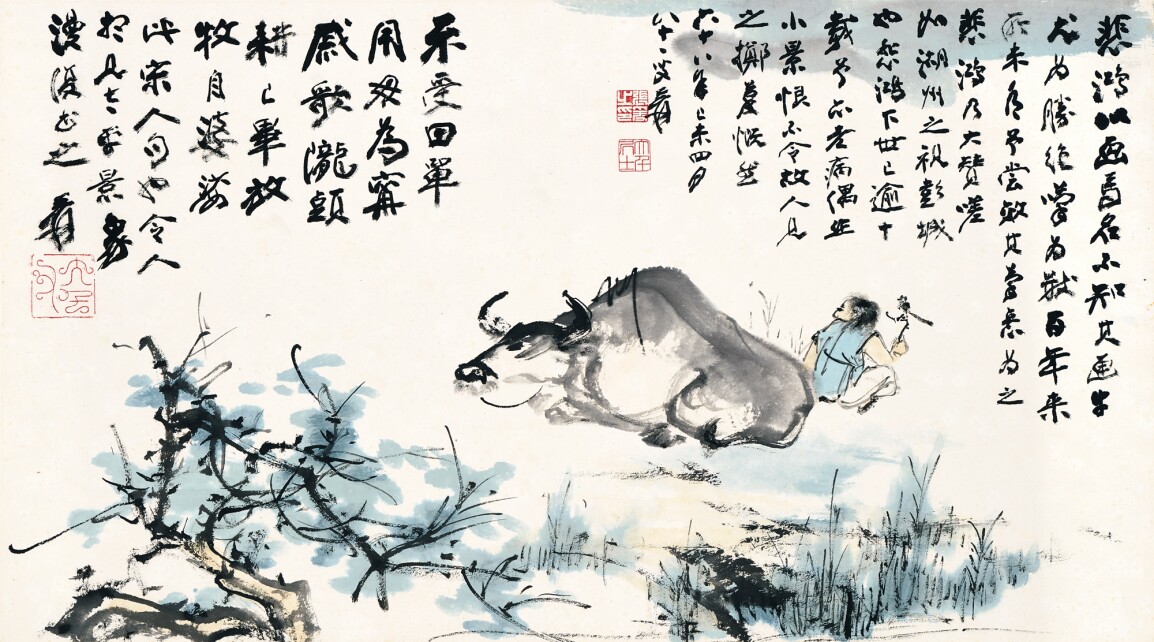 悲鴻以畫馬名不知其畫牛
尤為勝絕為獸百年来
所未有予嘗效其筆意為之
悲鴻乃大贊嗟
如湖州之視彭城
也悲鴻下世已逾十
載予亦老病偶作
小景恨不令故人見
之擲筆慨然
六十八年己未四月
八十一叟爰
張爰之印
大千居士
不受田單
用毋為甯
戚歌隴頭
耕已畢放
牧自婆娑
此宋人句也令人
想見太平景象
漫復書之 爰